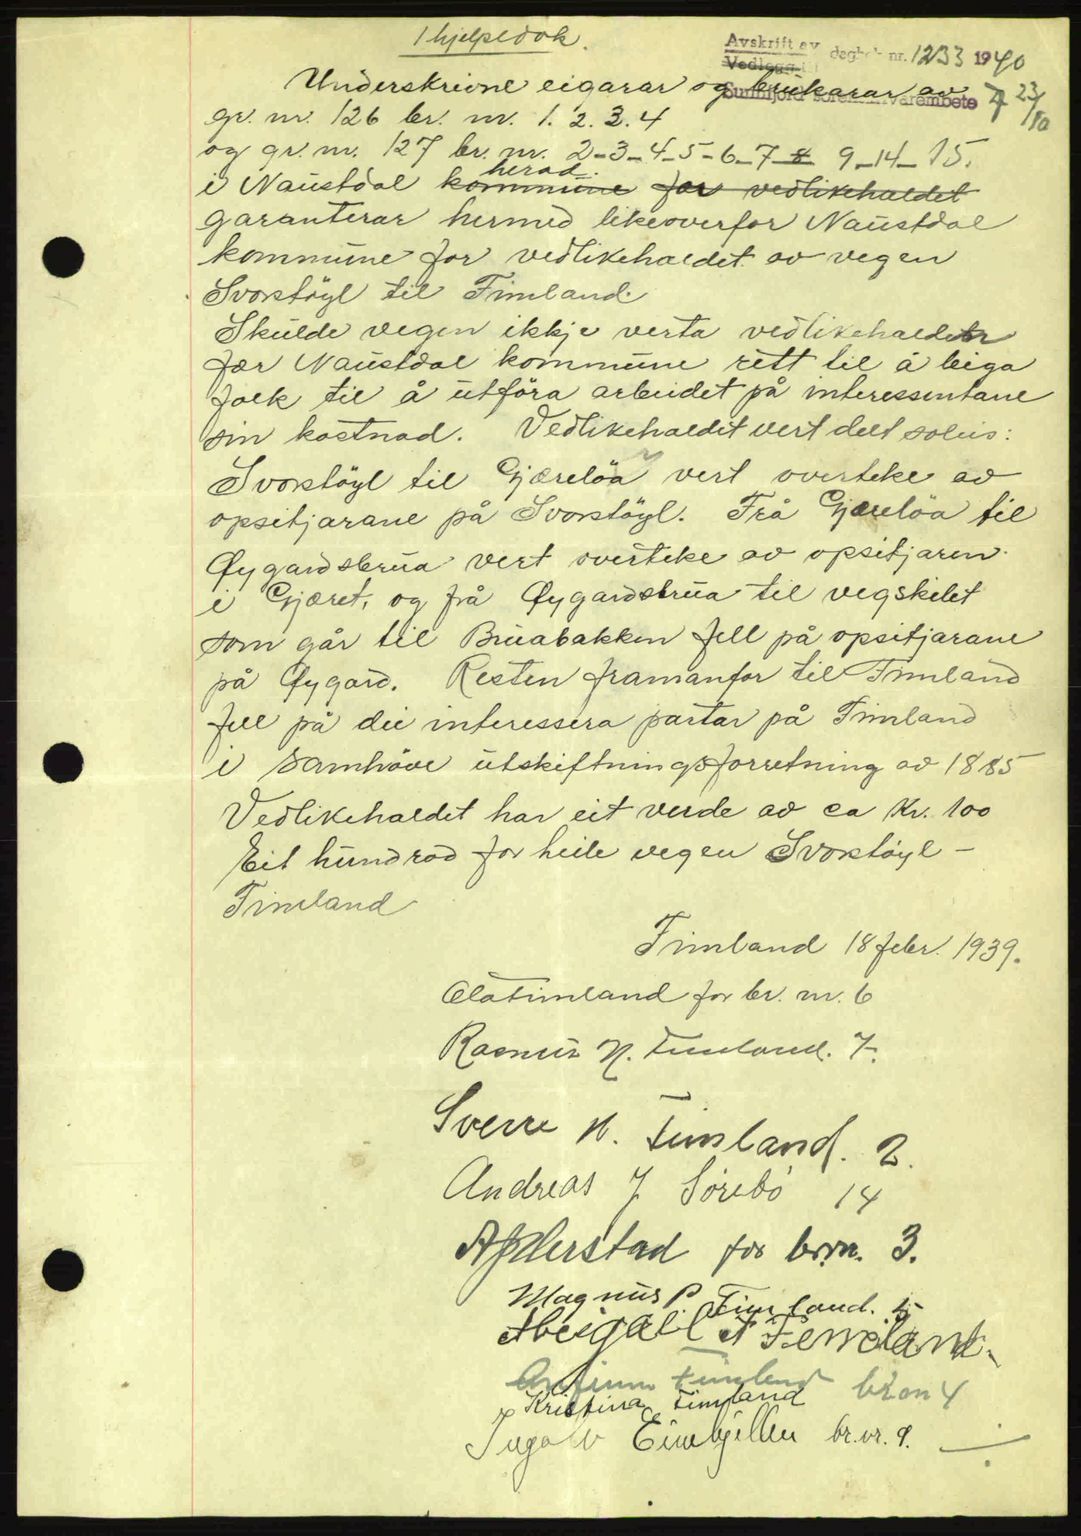 1 hjelpedok.
Avskrift av
Vedlegg dagbok nr. 1233 1940
Sunnfjord sorenskrivarembete
23/10
Underskrivne eigarar og brukarar av
gr. nr. 126 br. nr. 1. 2. 3. 4
og gr. nr. 127 br. nr. 2-3-4-5-6-7-8 9-14-15.
herad
i Naustdal kommune for vedlikehaldet
garanterar hermed likeoverfor Naustdal
kommune for vedlikehaldet av vegen
Svorstöyl til Timland.
Skulde vegen ikkje verta vedlikehalden
fær Naustdal kommune rett til å leiga
folk til å utföra arbeidet på interessentane
sin kostnad. Vedlikehaldet vert delt soleis:
Svorstöyl til Gjærelöa vert overteke av
opsitjarane på Svorstöyl. Frå Gjærelöa til
Øygardsbrua vert overteke av opsitjaren
i Gjæret, og frå Øygardsbrua til vegskilet
som går til Bruabakken fell på opsitjarane
på Øygard. Resten framanfor til Timland
fell på dei interessera partar på Timland
i samhöve utskiftningsforretning av 1885
Vedlikehaldet har eit verde av ca Kr. 100
Eit hundrad for heile vegen Svorstöyl -
Timland
Timland 18 febr. 1939.
Ola Timland for br. nr. 6
Rasmus N. Timland. 7.
Sverre N. Timland. 2.
Andreas J Sörebö 14
for brn. 3.
Magnus P. Timland. 5
Abigael Timland.
Timland br nr 4
Kristina Timland
Ingolv Eimhjellen br. nr. 9.